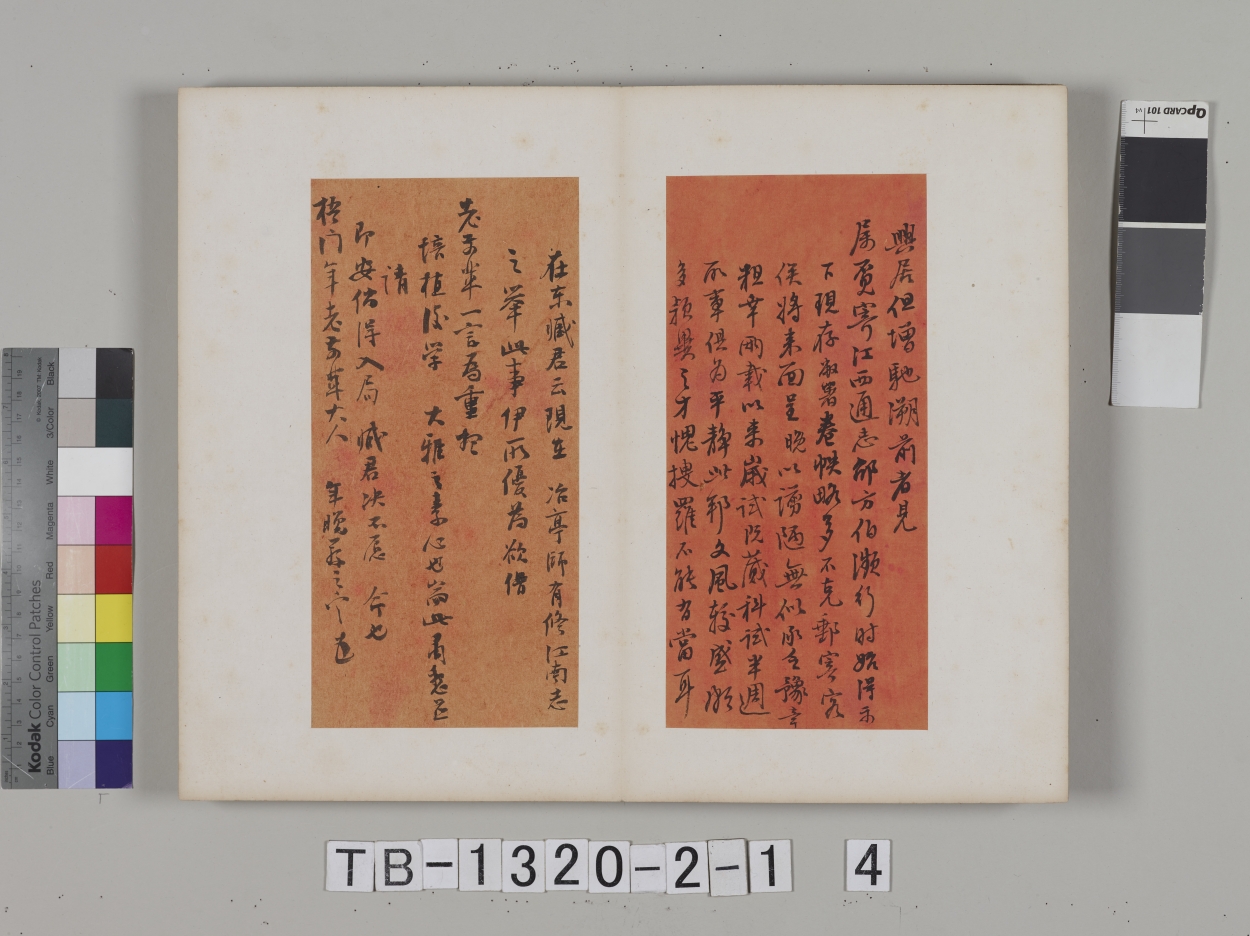 興居但增馳溯前者見
属覓寄江西通志郃方伯瀕行时始得示
下現存敝署卷帙略多不克郵寄容
俟将来面呈晚以谫陋無似承乏豫章
粗幸兩載以来歲试既蕆科試半週
所事俱为平静此邦文風較盛頗
多穎異之才愧搜羅不能有當耳
在东臧君云现在 冶亭師有修江南志
之举此事伊所優为欲借
老前辈一言爲重想
培植後学 大雅之素心也耑此肃志
請
即安倘得入局 臧君决不忝 令也
梧门年老前辈大人 年晚
TB-1320-2-1 4
Kodak Color Control Patches
Blue Cyan Green Yellow Red Magenta White 3/Color Black
QPCARD 101 v4